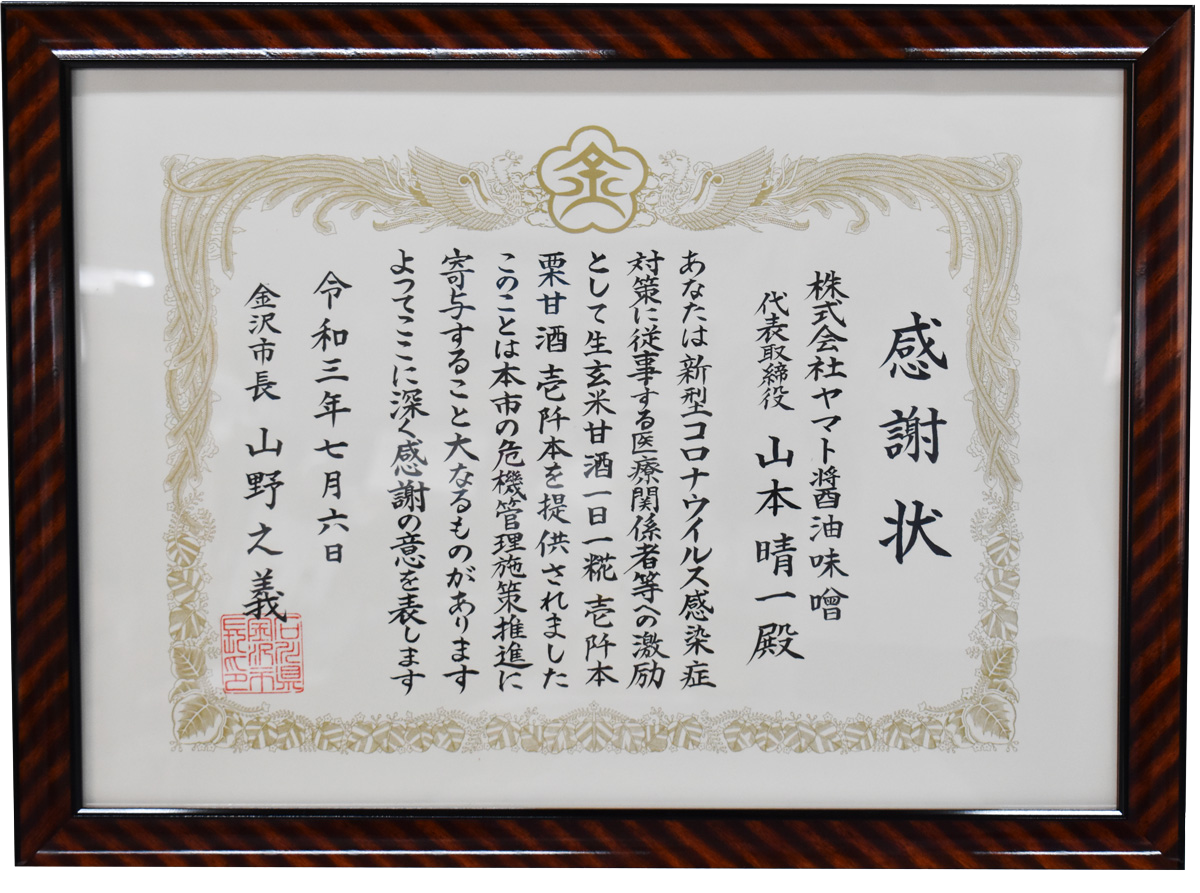 感謝状
株式会社ヤマト醤油味噌
代表取締役 山本晴一殿
あなたは新型コロナウイルス感染症
対策に従事する医療関係者等への激励
として生玄米甘酒一日一糀壱阡本
栗甘酒壱阡本を提供されました
このことは本市の危機管理施策推進に
寄与すること大なるものがあります
よってここに深く感謝の意を表します
令和三年七月六日
金沢市長 山野之義
石川県
金沢市
長之印